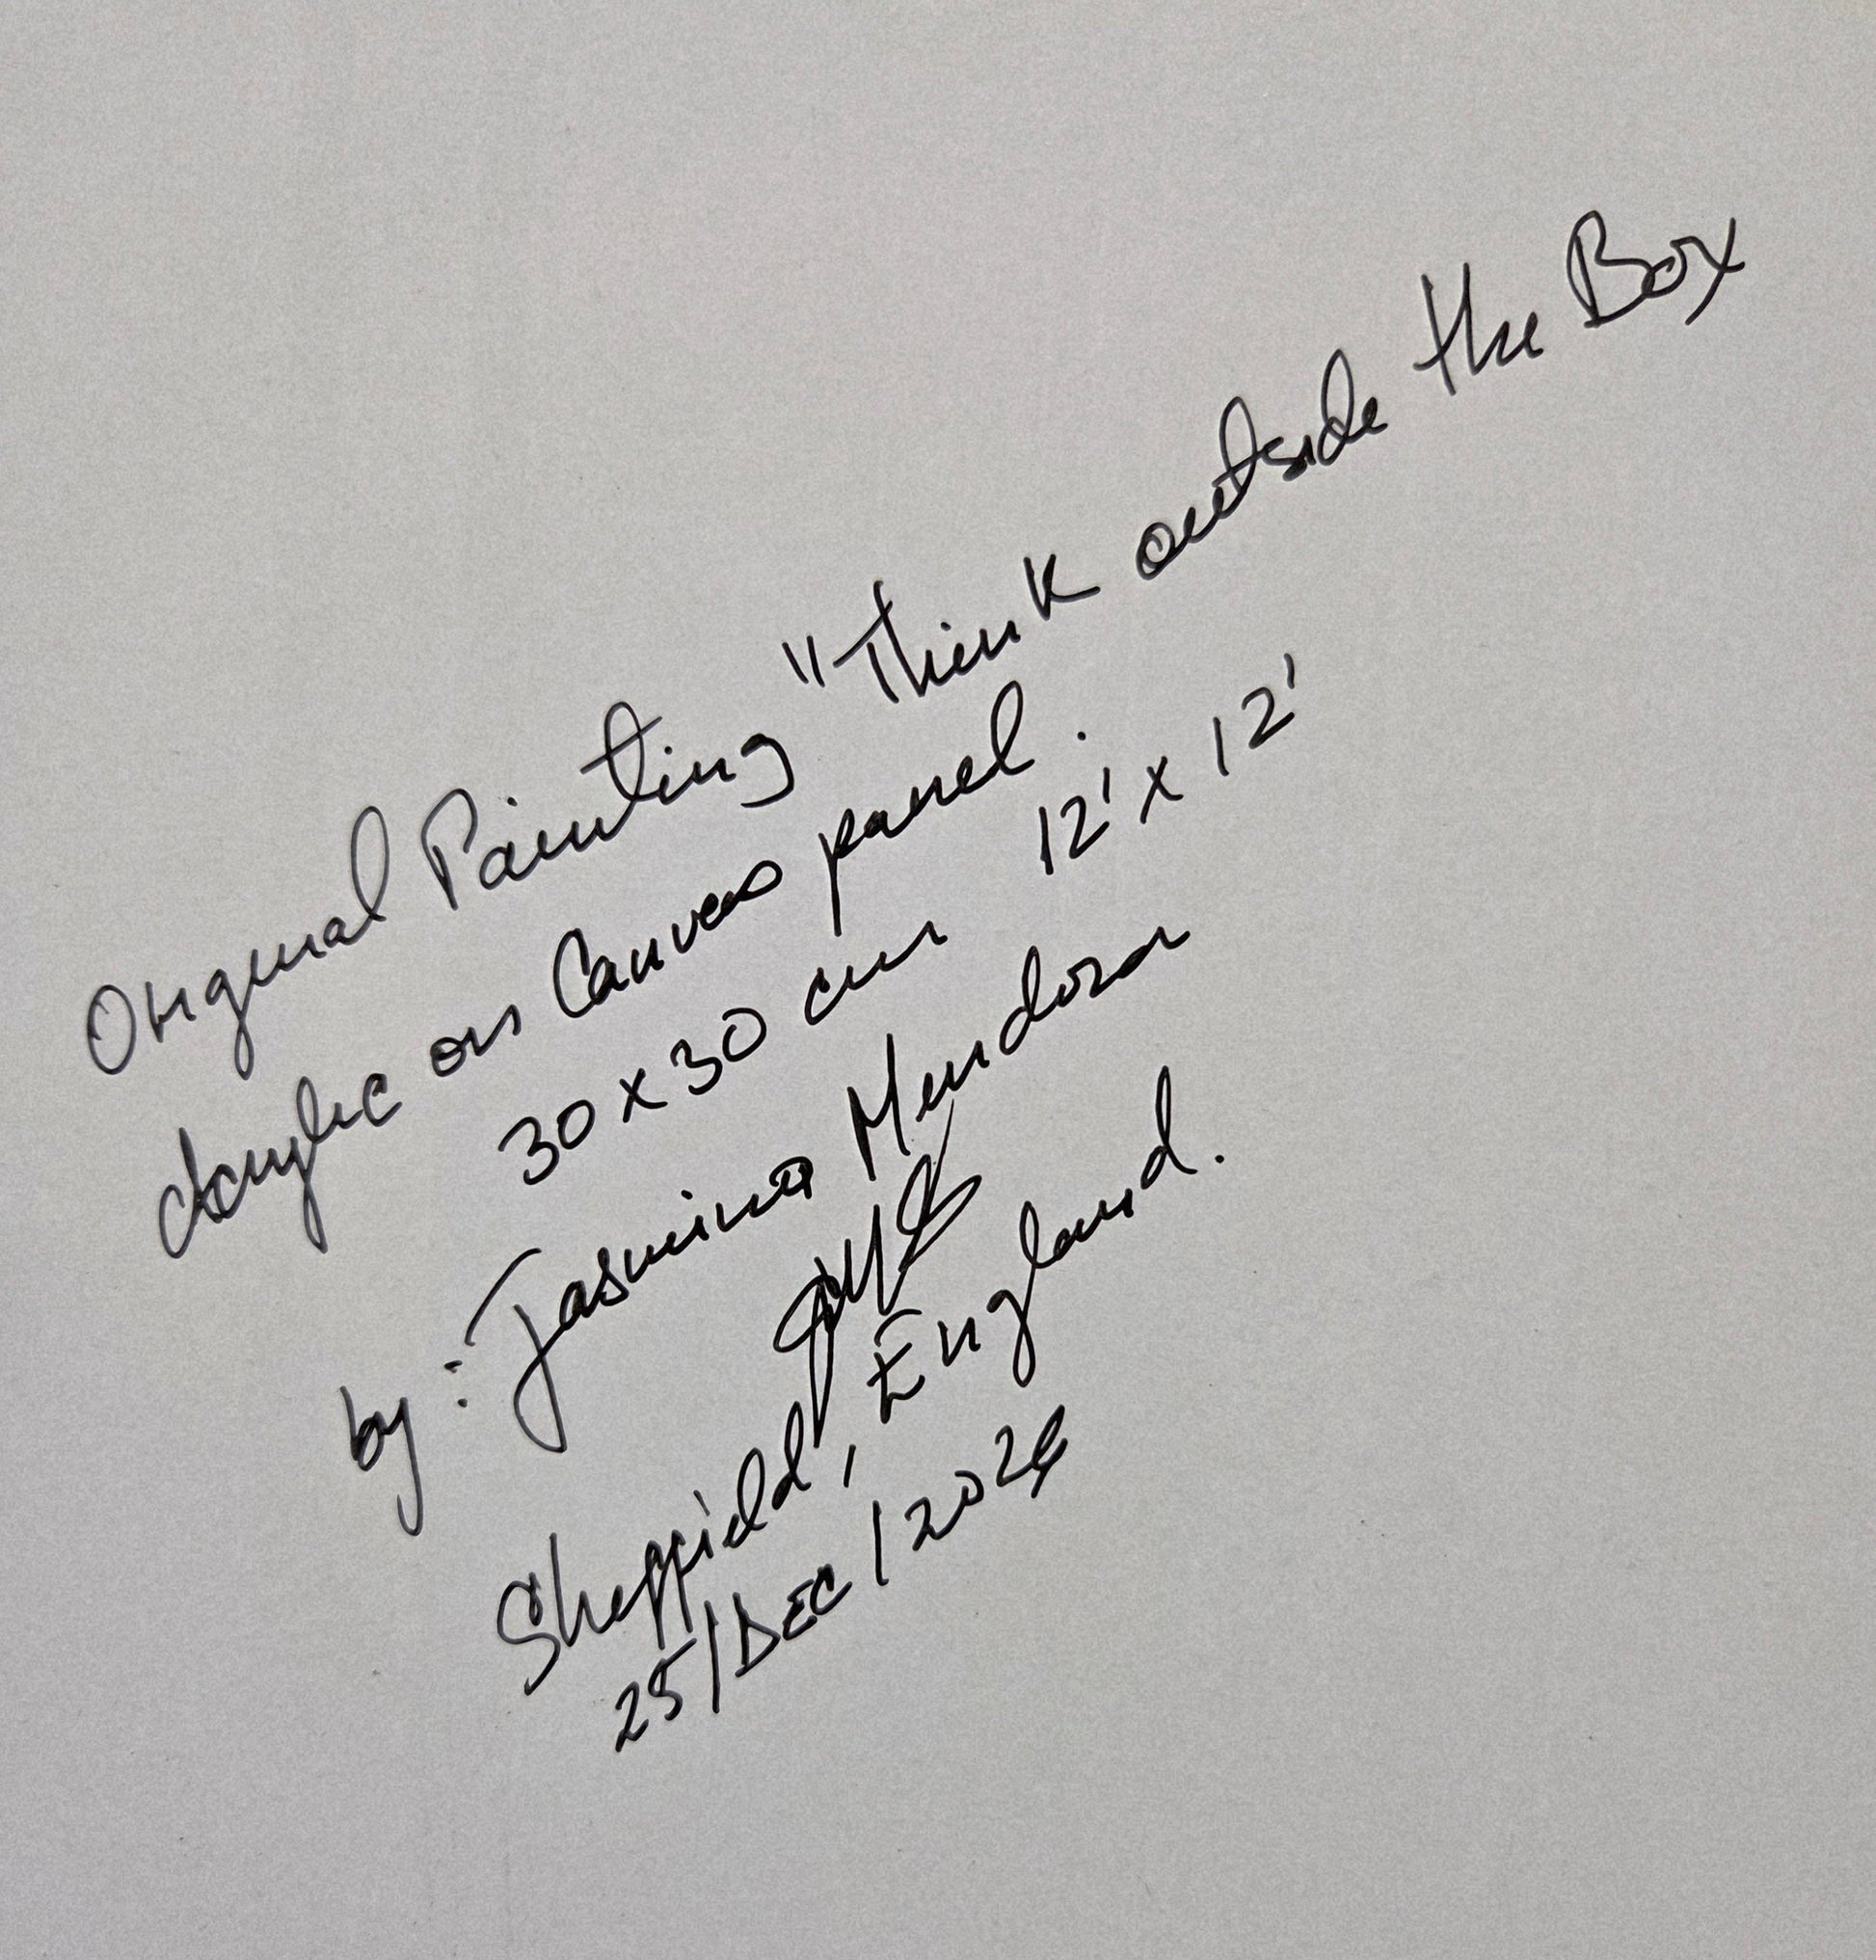 Original Painting "Think outside the Box
Acrylic on Canvas panel.
30 x 30 cm 12' x 12'
by: Jasmina Mendoza
Sheffield, England.
25/DEC/2024